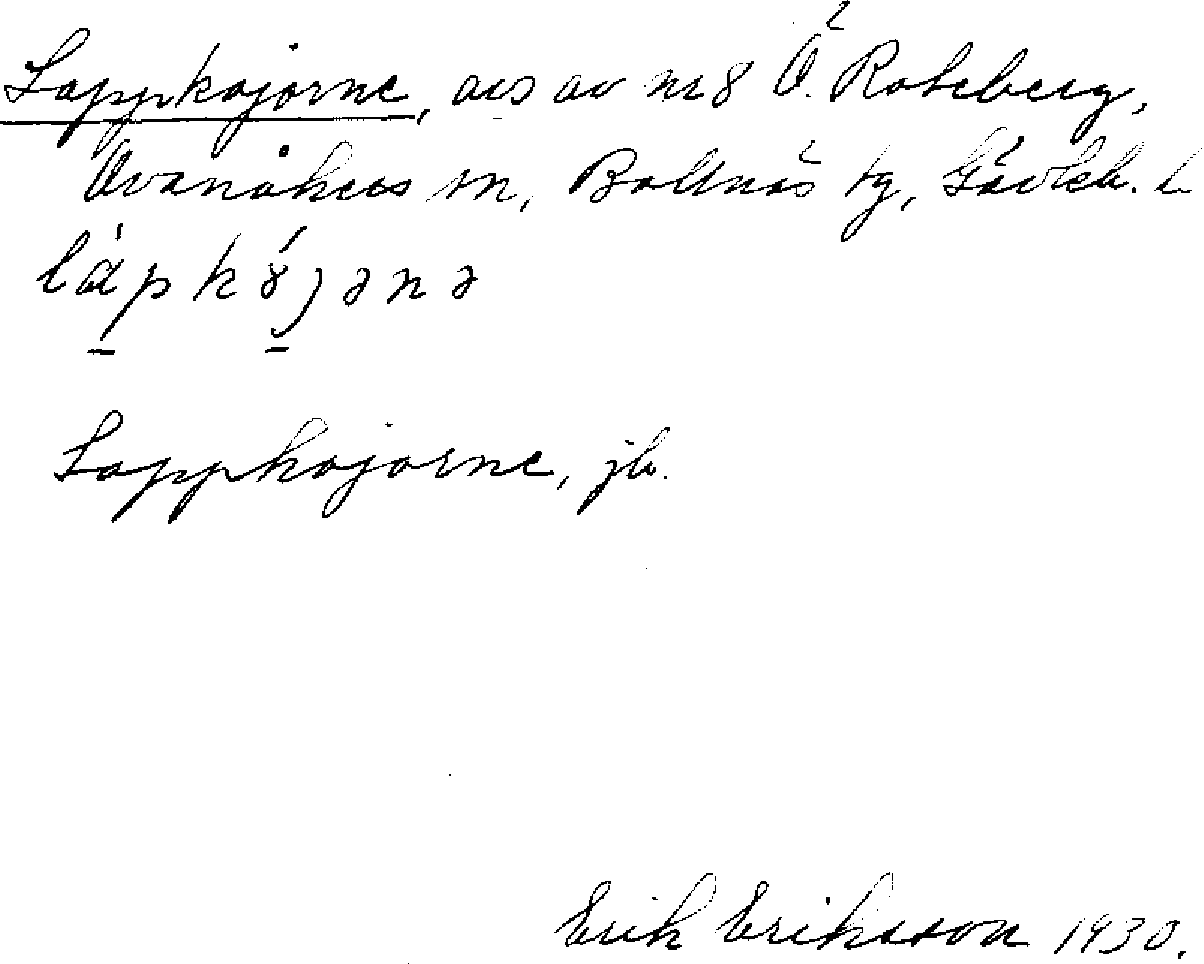 Lappkojorne, avs av nr 8 Ö. Roteberg,
Ovanåkers sn, Bollnäs tg, Gävleb. l
Lappkojorne, jb.
Erik Eriksson 1930.